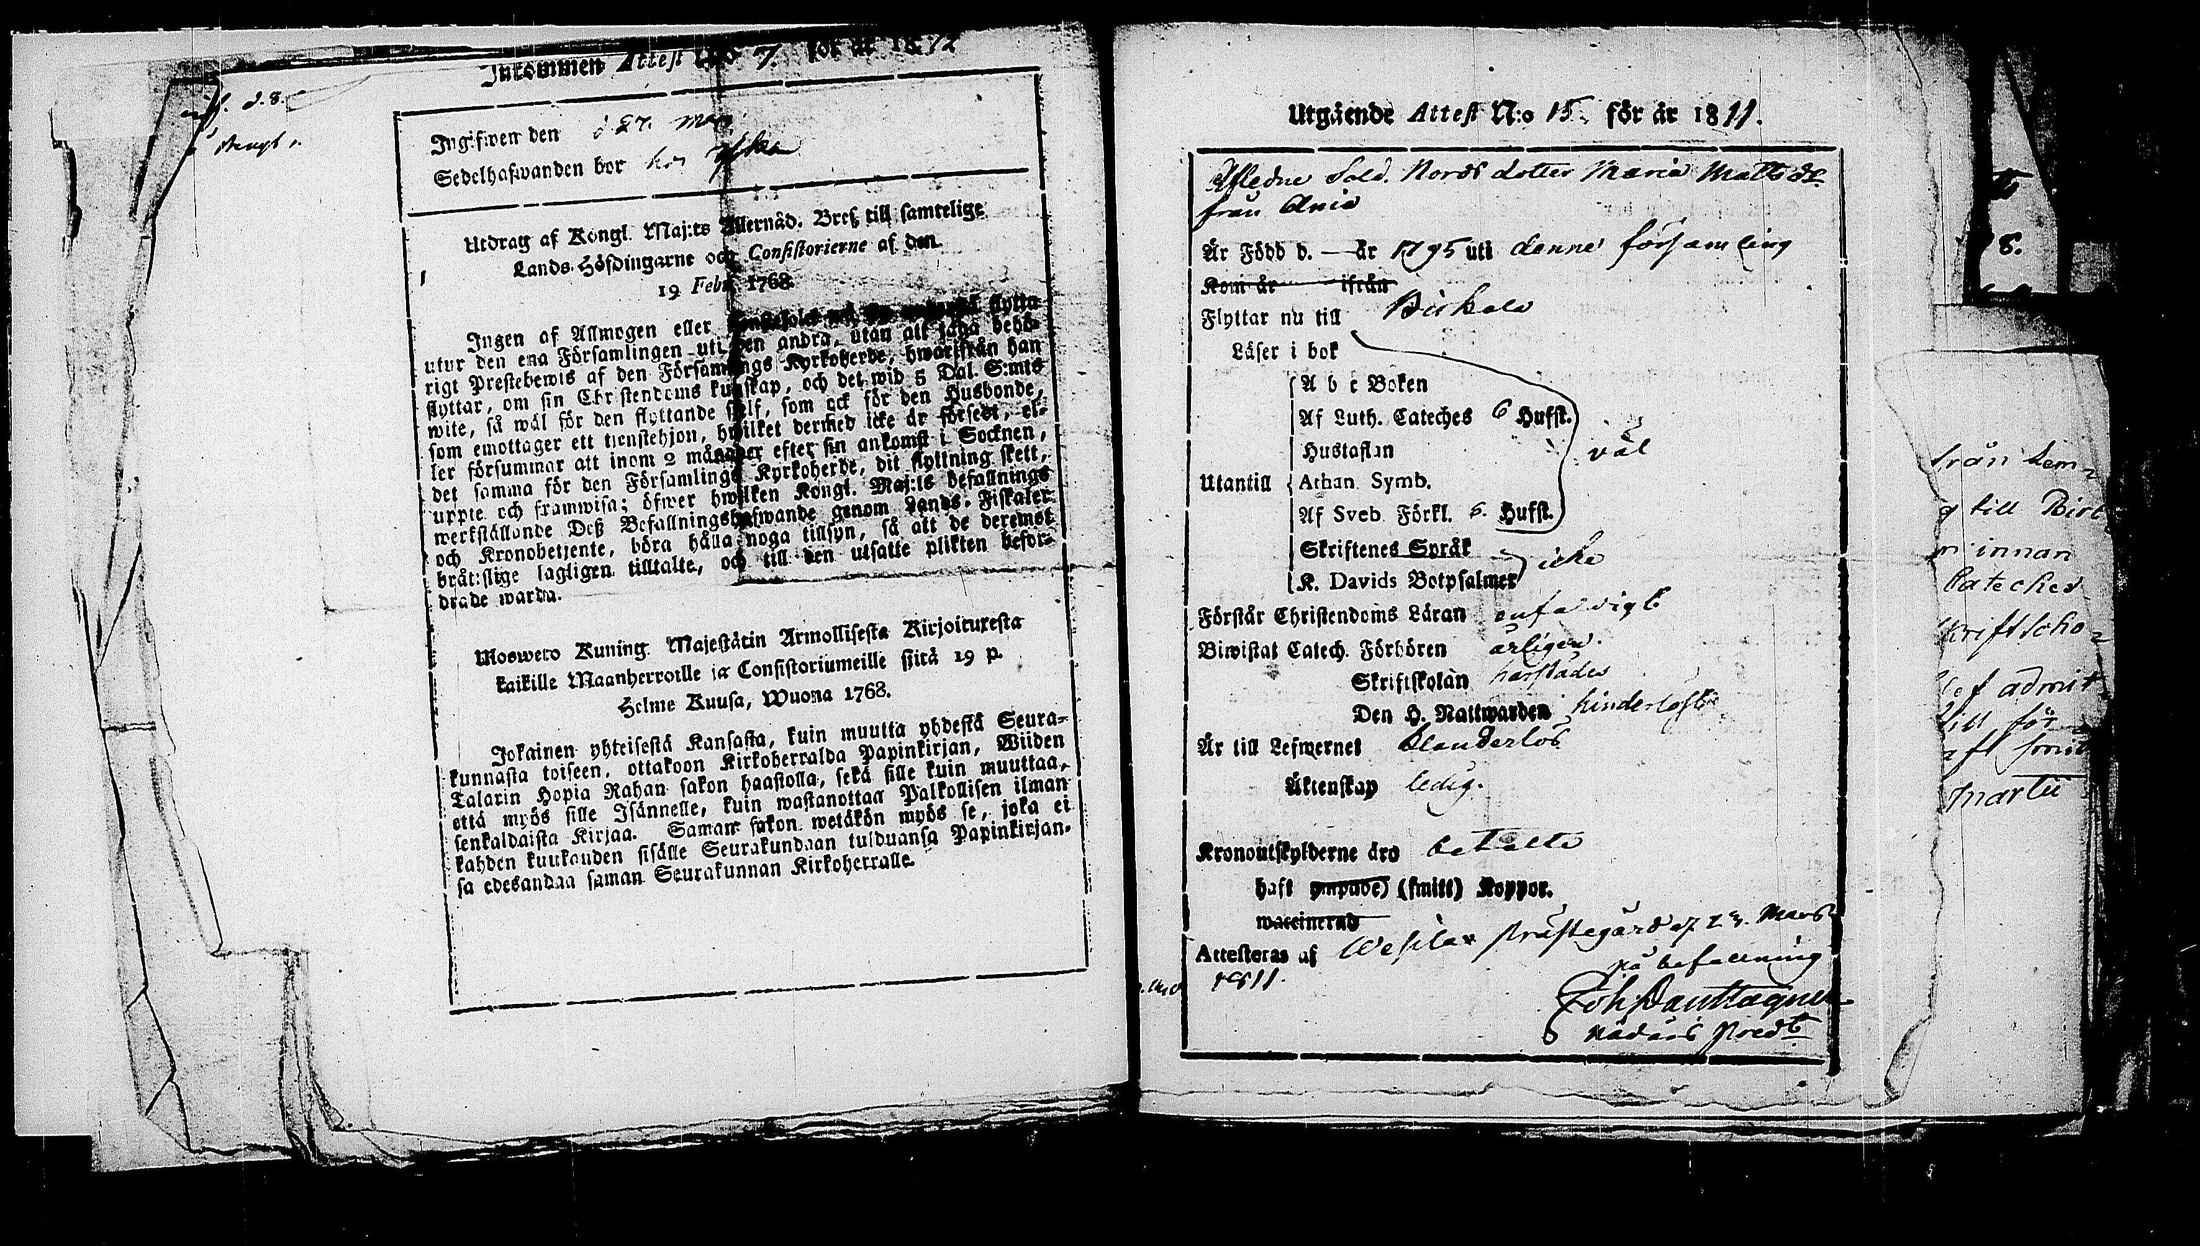 Inkommen Attest N:o 7. för år 18
Ingifwen den d. 27. Mars
Sedelhafwanden bor hos
Utdrag af Kongl. Maj:ts Allernåd. Bref till samtelige
Lands-Höfdingarne och Consistorierne af den
19 Febr. 1768.
Ingen af Allmogen eller flytta
utur den ena Församlingen uti den andra, utan att taga behö-
rigt Prestebewis af den Församlings Kyrkoherde, hwarifrån han
flyttar, om sin Christendoms kunskap, och det wid 5 Dal. S:mts
wite, så wäl för den flyttande sjelf, som ock för den Husbonde,
som emottager ett tienstehjon, hwilket dermed icke är försedt, el-
ler försummar att inom 2 månader efter sin ankomst i Socknen,
det samma för den Församlings Kyrkoherde, dit flyttning skett,
uppte och framwisa; öfwer hwilken Kongl. Maj:ts befallnings
werkställande Deß Befallningshafwande genom Lands-Fiskaler
och Kronobetjente, böra hålla noga tillsyn, så att de deremot
bråtslige lagligen tilltalte, och till den utsatte plikten befor-
drade warda.
Uloswero Kuning. Majestätin Armollisesta Kirjoituresta
kaikille Maanherroille ja Consistoriumeille siitä 19 p.
Helme Kuusa, Wuona 1768.
Jokainen yhteisestä Kansasta, kuin muutta yhdestä Seura-
kunnasta toiseen, ottakoon Kirkoherralda Papinkirjan, Wiiden
Talarin Hopia Rahan sakon haastolla, sekä sille kuin muuttaa,
että myös sille Isännelle, kuin wastanottaa Palkollisen ilman
senkaldaista Kirjaa. Saman sakon wetäkön myös se, joka ei
kahden kuukauden sisälle Seurakundaan tulduansa Papinkirjan-
sa edesandaa saman Seurakunnan Kirkoherralle.
Utgående Attest N:o 15 för år 1811.
Afledne Sold. Nords dotter Maria Matts dr
från Ania
Är Född d. — år 1795 uti denne församling
Kom år ifrån
Flyttar nu till Birkala
Läser i bok
A b c Boken
Af Luth. Cateches 6 Hufst.
Hustaflan
väl
Utantill Athan. Symb.
Af Sveb. Förkl. 6. Hufst.
Skriftenes Språk
icke
K. Davids Botpsalmer
Förstår Christendoms Läran enfaldigt
Biwistat Catech. Förhören årligen.
Skriftskolan
Den H. Nattwarden hinderlöst
Är till Lefwernet klanderlös
Äktenskap ledig.
Kronoutskylderne äro betalte
haft ympade) (smitt) Koppor.
waccinerad
Attesteras af Wesilax prästegård af 23. Mars
1811.
på befallning
Joh
Nådårs Pred:t
från Lem-
till Birk
innan
Cateches
skriftscho-
admit
till för
haft smit
Martii